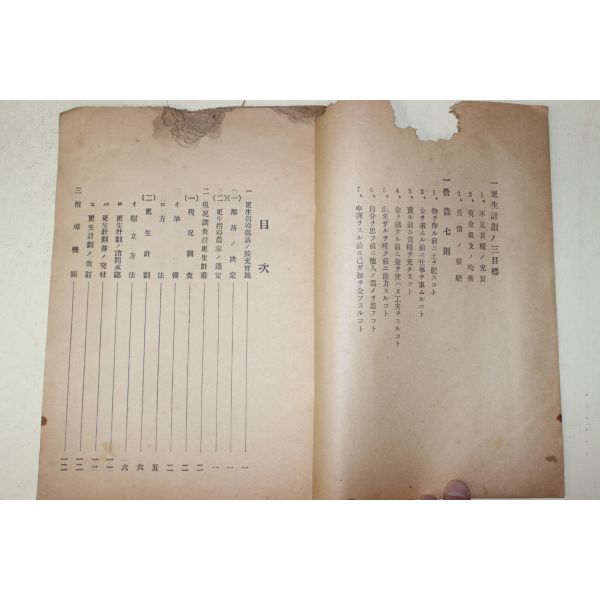 一 更生計劃ノ三目標
1、不足食糧ノ充實
2、現金収支ノ均衡
3、負債ノ根絶
一 營農七則
1、物ヲ作ル前ニ土ヲ肥スコト
2、金ヲ求ムル前ニ仕事ヲ求ムルコト
3、賣ル前ニ食糧ヲ充タスコト
4、金ヲ儲ケル前ニ金ヲ使ハヌ工夫ヲスルコト
5、出來ザルヲ嘆ク前ニ協力スルコト
6、自分ヲ思フ前ニ他人ノ爲メヲ思フコト
7、申譯ヲスル前ニ己ガ務ヲ全フスルコト
目次
一 更生指導部落ノ擴充實施 一
(一) 部落ノ決定 一
(二) 更生指導農家ノ選定 一
二 現況調査並更生計畫 二
(一) 現況調査 二
イ 準備 二
ロ 方法 五
(二) 更生計劃 六
イ 樹立方法 六
ロ 更生計劃ノ諮問承認
ハ 更生計劃書ノ交付
ニ 更生計劃ノ改訂
三 指導機關